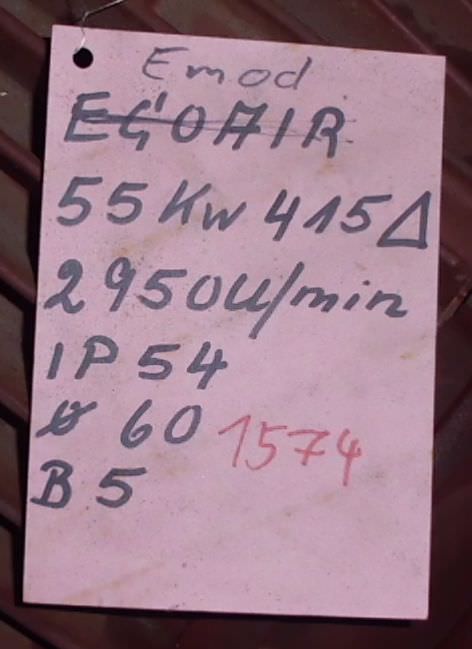 Emod
EGOAIR
55 Kw 415 Δ
2950 U/min
IP 54
ø 60
1574
B 5